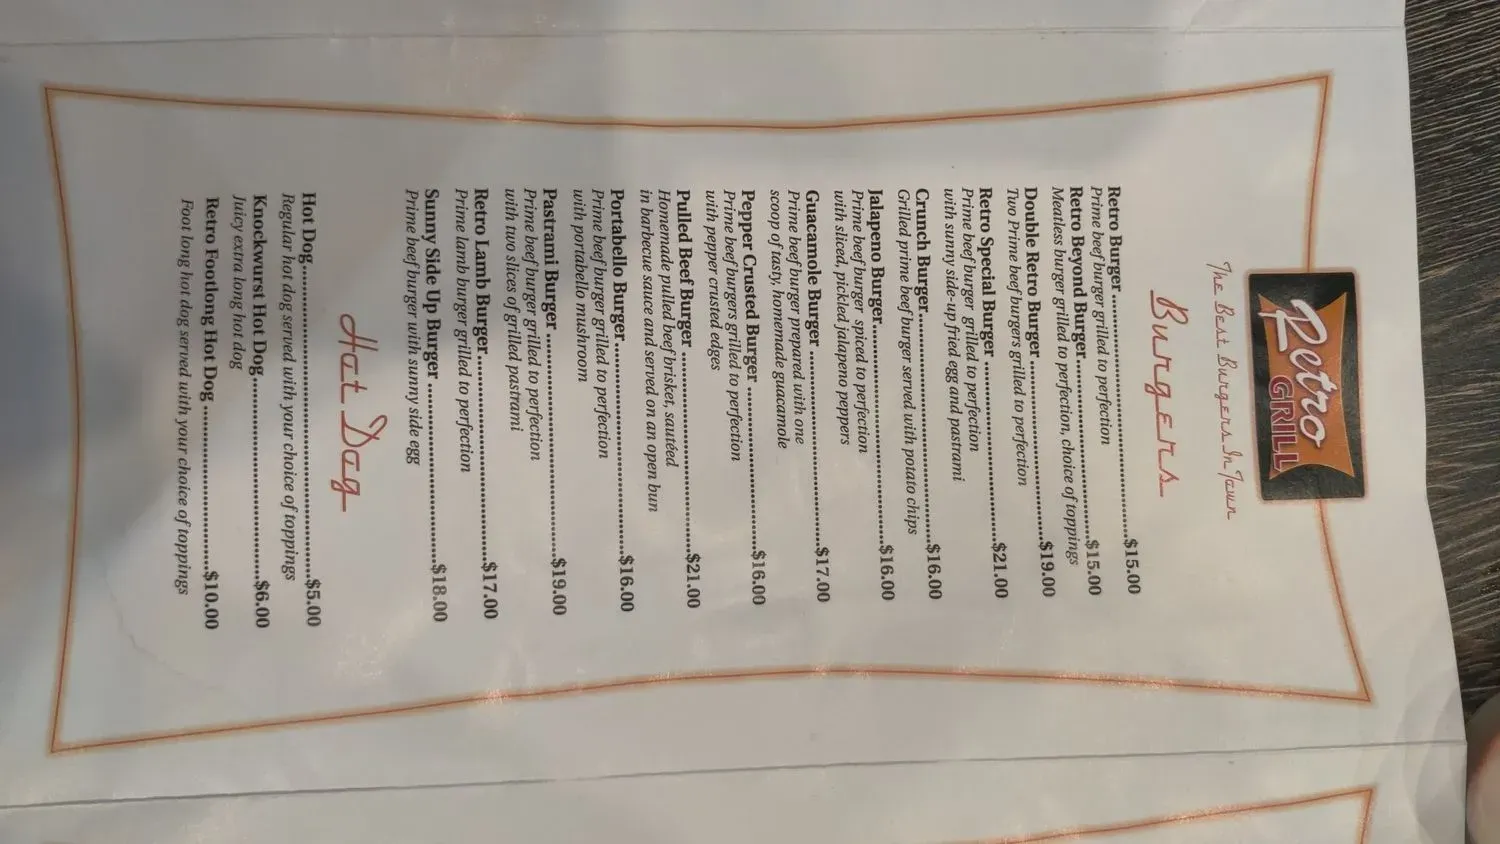 Retro
GRILL
The Best Burgers In Town
Burgers
Retro Burger...............................................$15.00
Prime beef burger grilled to perfection
Retro Beyond Burger...................................$15.00
Meatless burger grilled to perfection, choice of toppings
Double Retro Burger...................................$19.00
Two Prime beef burgers grilled to perfection
Retro Special Burger...................................$21.00
Prime beef burger grilled to perfection
with sunny side-up fried egg and pastrami
Crunch Burger............................................$16.00
Grilled prime beef burger served with potato chips
Jalapeno Burger..........................................$16.00
Prime beef burger spiced to perfection
with sliced, pickled jalapeno peppers
Guacamole Burger......................................$17.00
Prime beef burger prepared with one
scoop of tasty, homemade guacamole
Pepper Crusted Burger................................$16.00
Prime beef burgers grilled to perfection
with pepper crusted edges
Pulled Beef Burger......................................$21.00
Homemade pulled beef brisket, sautéed
in barbecue sauce and served on an open bun
Portabello Burger........................................$16.00
Prime beef burger grilled to perfection
with portabello mushroom
Pastrami Burger..........................................$19.00
Prime beef burger grilled to perfection
with two slices of grilled pastrami
Retro Lamb Burger......................................$17.00
Prime lamb burger grilled to perfection
Sunny Side Up Burger.................................$18.00
Prime beef burger with sunny side egg
Hot Dog
Hot Dog......................................................$5.00
Regular hot dog served with your choice of toppings
Knockwurst Hot Dog...................................$6.00
Juicy extra long hot dog
Retro Footlong Hot Dog..............................$10.00
Foot long hot dog served with your choice of toppings